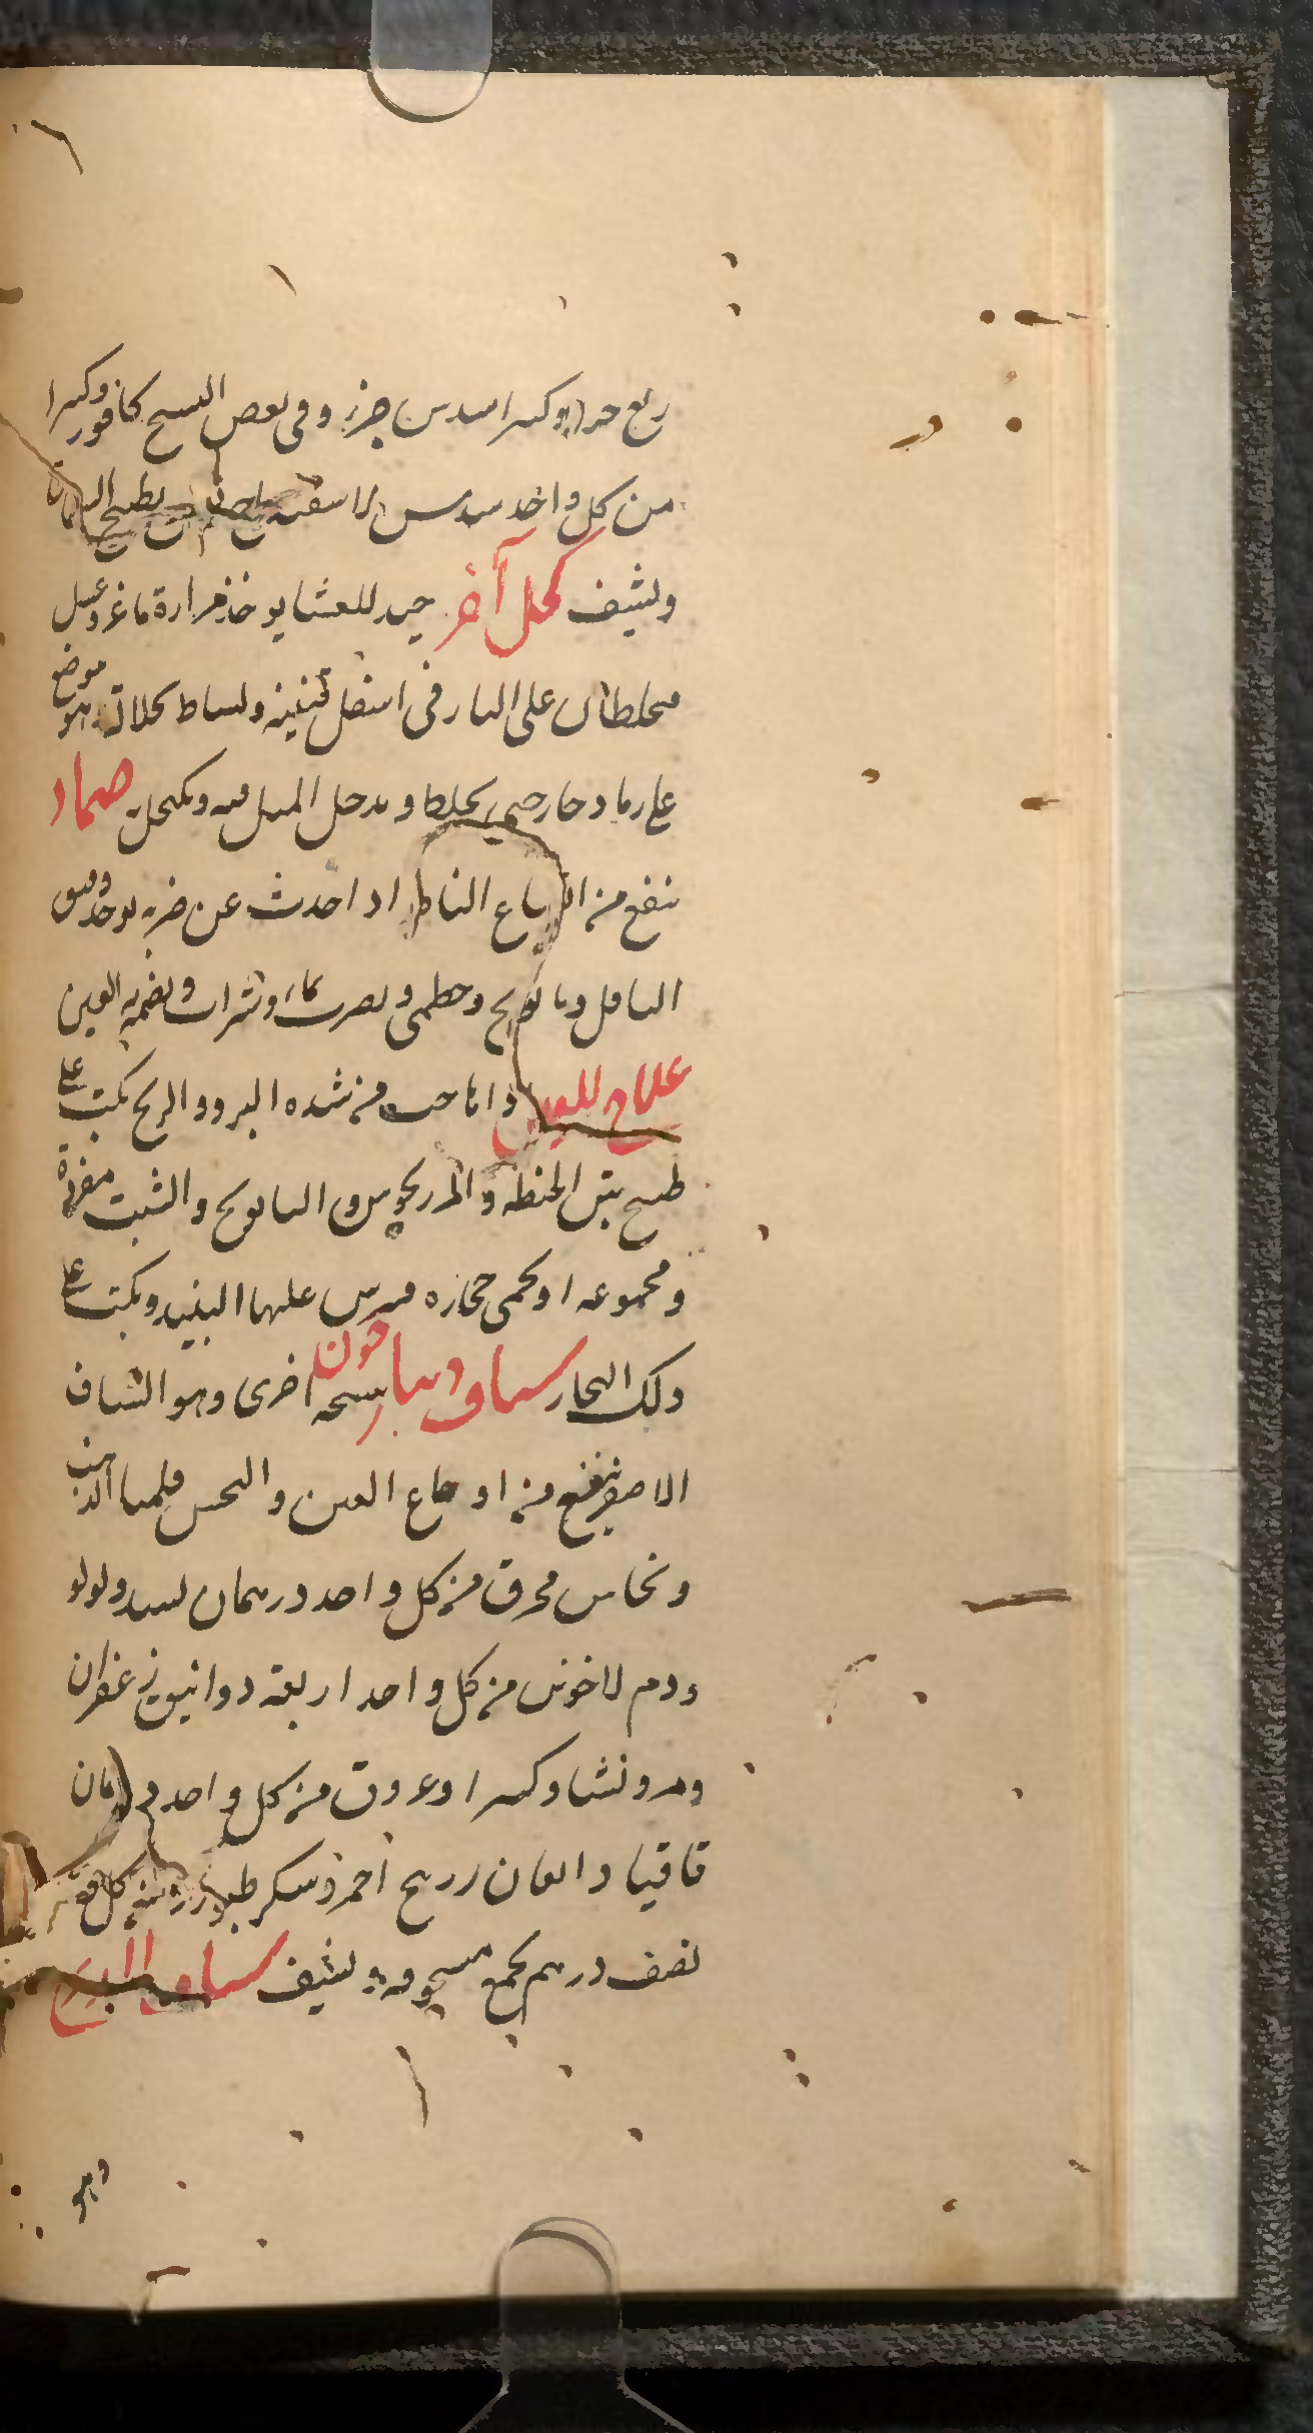 ربع جزء وكثيرا سدس جزء وفي بعض النسخ كافور وكثيرا
من كل واحد سدس يطبخ
ويشيف كحل آخر جيد للعشا يوخذ مرارة ماعز وعسل
يخلطان على النار في اسفل قنينة موضع
على رماد حار حتى يختلطا ويدخل الميل فيه ويكتحل ضماد
ينفع من اتساع الناظر اذا حدث عن ضربه يوخذ دقيق
الباقلى وبابونج وخطمى ويضرب بماء وشراب ويضمد به العين
علاج للعين اذا من شده البرد والريح يكب على
طبيخ تبن الحنطه والمرزنجوش والبابونج والشبت مفردة
ومجموعه او يحمى حجاره فيرش عليها النبيذ ويكب على
ذلك البخار شياف ديبارحون نسخه اخرى وهو الشياف
الاصفر ينفع من اوجاع العين قليميا الذهب
ونحاس محرق من كل واحد درهمان بسد ولولو
ودم لاخوين من كل واحد اربعة دوانيق زعفران
ومر ونشا وكثيرا وعروق من كل واحد درهمان
قاقيا دانقان زرنيخ احمر وسكر طبرزد من كل
نصف درهم يجمع مسحوقه ويشيف شياف
وهو